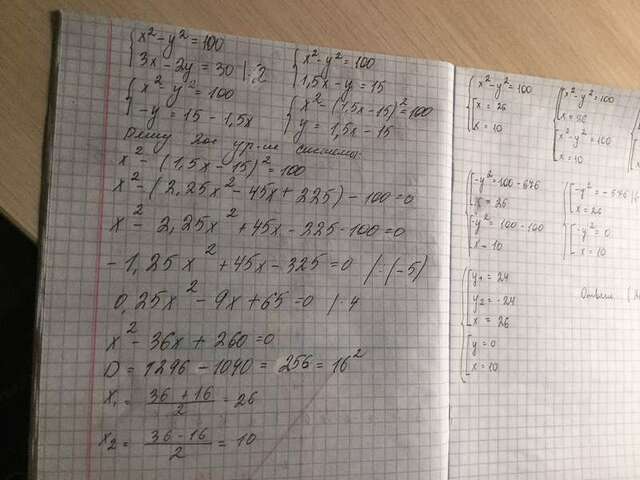 { x² - y² = 100
{ 3x - 2y = 30 | : 2
{ x² - y² = 100
{ -y = 15 - 1,5x
{ x² - y² = 100
{ 1,5x - y = 15
{ x² - (1,5x - 15)² = 100
{ y = 1,5x - 15
Решу 2ое ур-ие системы:
x² - (1,5x - 15)² = 100
x² - (2,25x² - 45x + 225) - 100 = 0
x² - 2,25x² + 45x - 225 - 100 = 0
-1,25x² + 45x - 325 = 0 | : (-5)
0,25x² - 9x + 65 = 0 | · 4
x² - 36x + 260 = 0
D = 1296 - 1040 = 256 = 16²
x₁ = (36 + 16)/2 = 26
x₂ = (36 - 16)/2 = 10
{ x² - y² = 100
[ x = 26
[ x = 10
[ { x² - y² = 100
x = 26
[ { x² - y² = 100
x = 10
[ { -y² = 100 - 676
x = 26
[ { -y² = 100 - 100
x = 10
x = 26
[ { -y² = 0
x = 10
[ { [ y₁ = 24
[ y₂ = -24
x = 26
{ y = 0
x = 10
Ответ: (